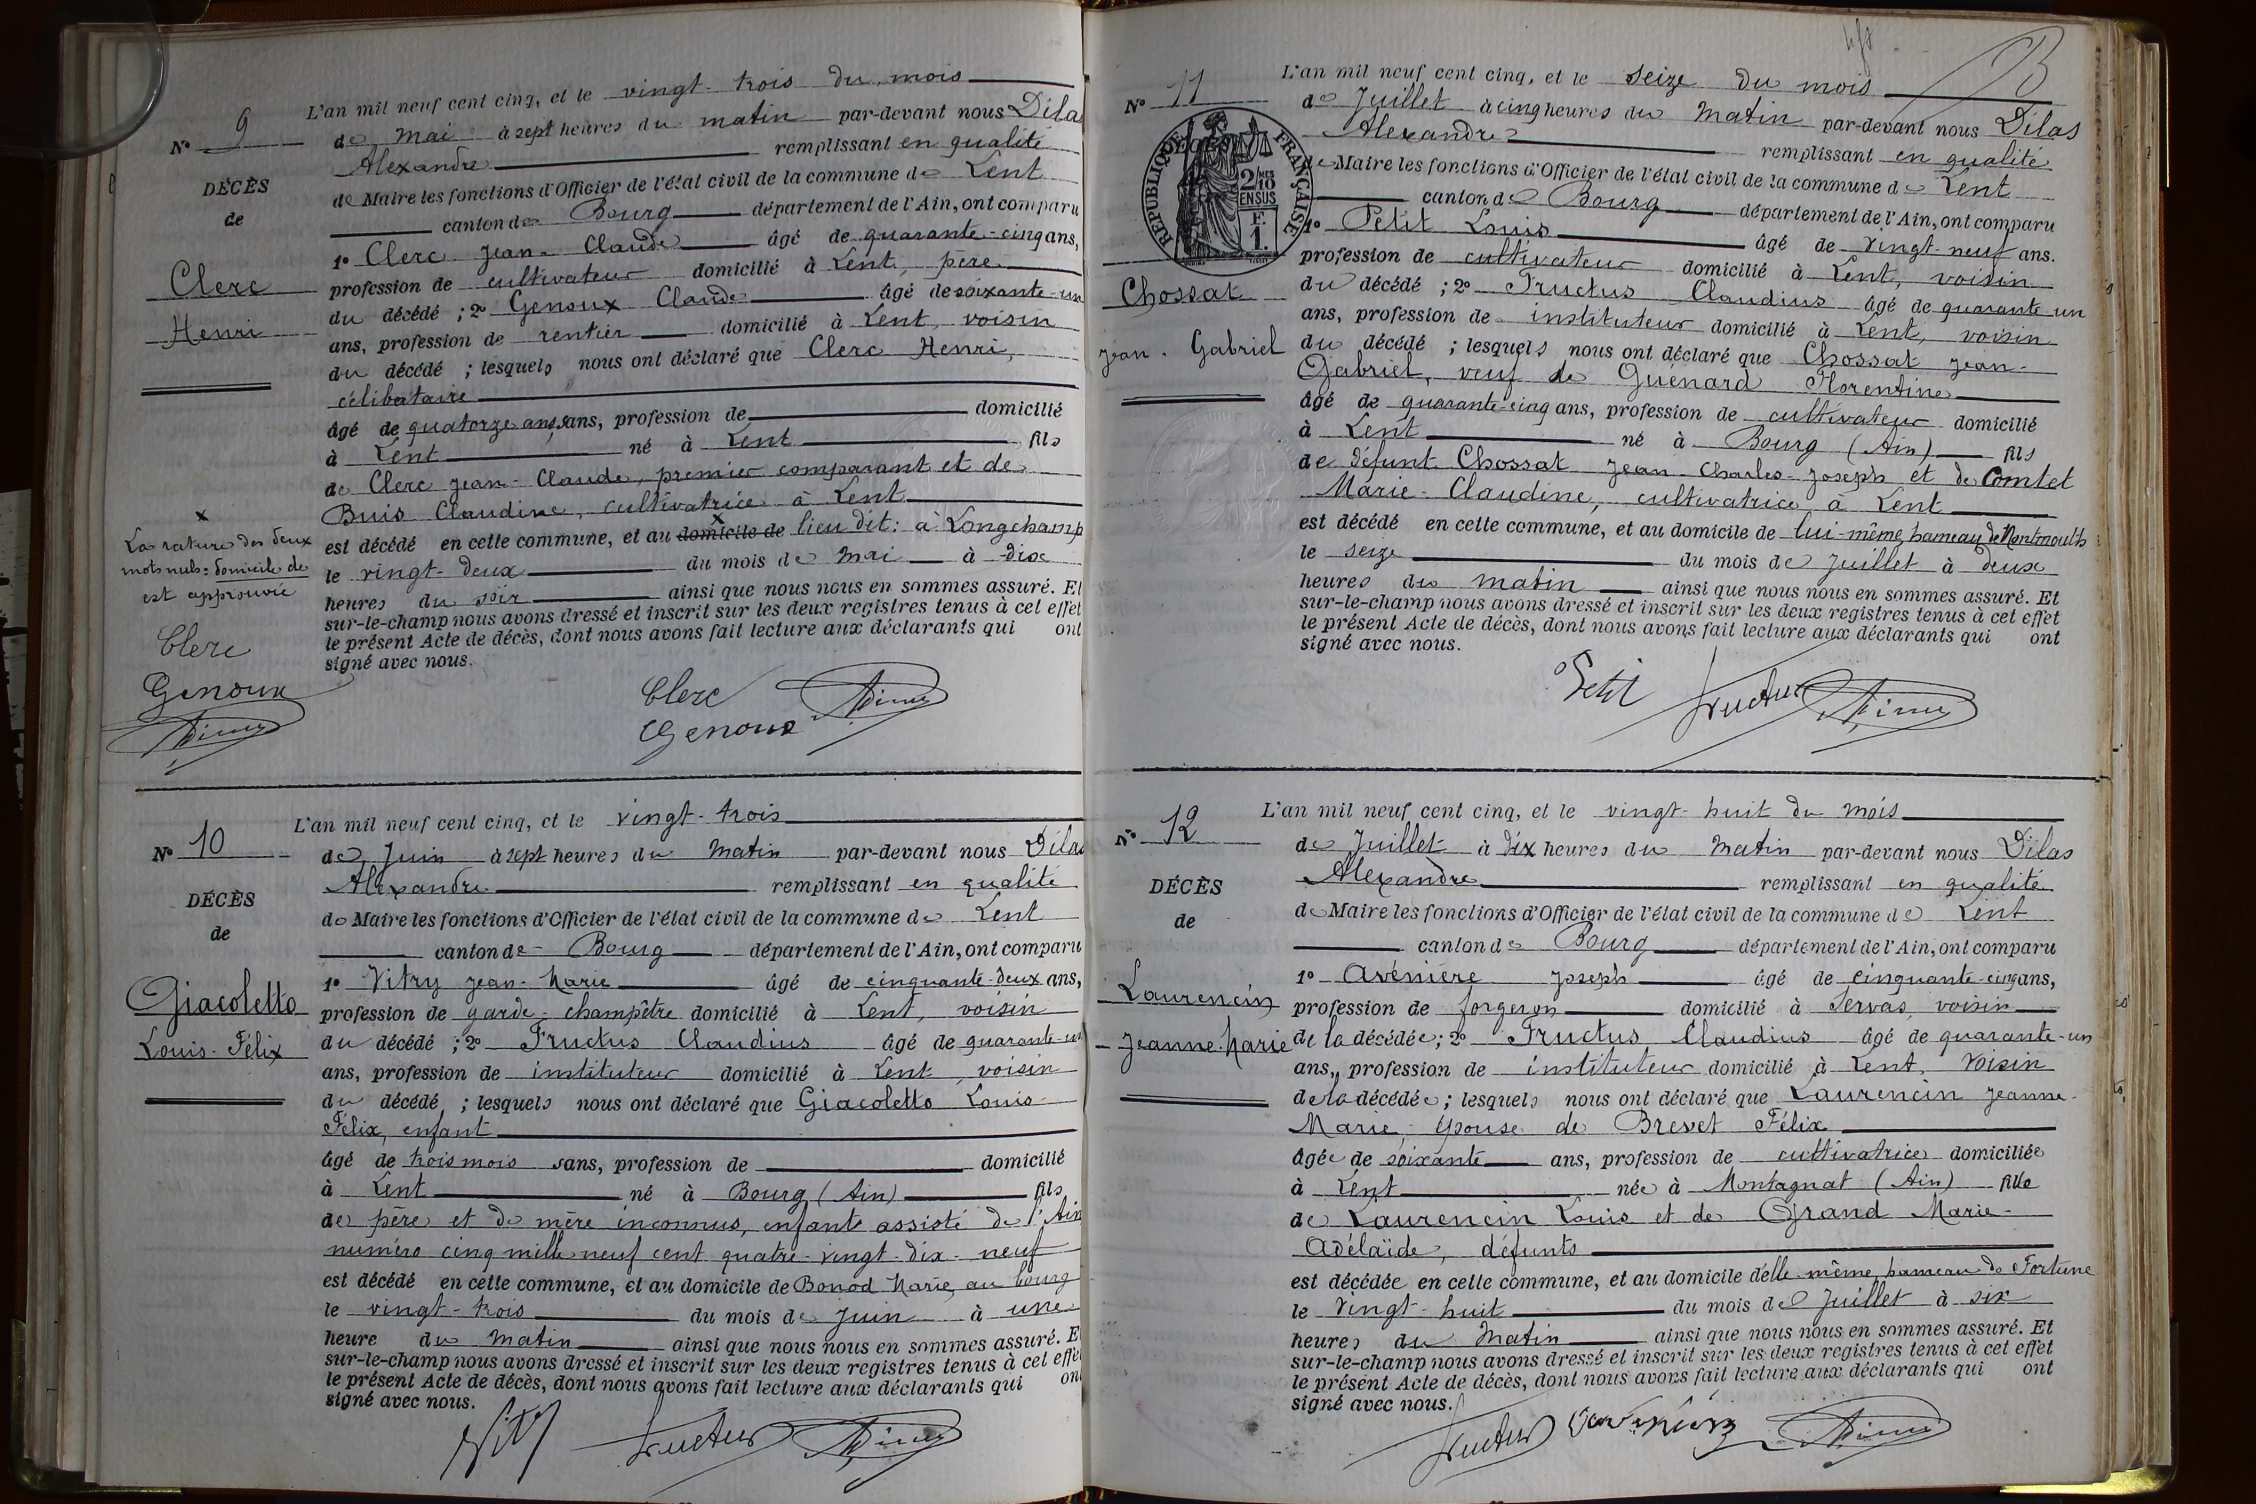 L'an mil neuf cent cinq, et le vingt-trois du mois
de Mai à sept heures du matin par-devant nous Dila
N° 9
Alexandre remplissant en qualité
DÉCÈS
de Maire les fonctions d'Officier de l'état civil de la commune de Lent
de
canton de Bourg département de l'Ain, ont comparu
1° Clerc Jean-Claude âgé de quarante-cinq ans,
Clerc
profession de cultivateur domicilié à Lent, père
du décédé ; 2° Genoux Claude âgé de soixante-un
Henri
ans, profession de rentier domicilié à Lent, voisin
du décédé ; lesquels nous ont déclaré que Clerc Henri,
célibataire
âgé de quatorze ans, sans, profession de domicilié
à Lent né à Lent fils
de Clerc Jean-Claude, premier comparant et de
Buis Claudine, cultivatrice à Lent
est décédé en cette commune, et au domicile de lieu dit: à Longchamp
le vingt-deux du mois de Mai à dix
heures du soir ainsi que nous nous en sommes assuré. Et
sur-le-champ nous avons dressé et inscrit sur les deux registres tenus à cet effet
le présent Acte de décès, dont nous avons fait lecture aux déclarants qui ont
signé avec nous.
x
La rature des deux
mots nuls: domicile de
est approuvée
Clerc
Genoux
Clerc
Genoux
N° 10
L'an mil neuf cent cinq, et le vingt-trois
de Juin à sept heures du Matin par-devant nous Dilas
Alexandre remplissant en qualité
DÉCÈS
de Maire les fonctions d'Officier de l'état civil de la commune de Lent
de
canton de Bourg département de l'Ain, ont comparu
1° Vitry Jean-Marie âgé de cinquante-deux ans,
Giacoletto
profession de garde-champêtre domicilié à Lent, voisin
Louis-Félix
du décédé ; 2° Fructus Claudius âgé de quarante-un
ans, profession de instituteur domicilié à Lent, voisin
du décédé ; lesquels nous ont déclaré que Giacoletto Louis-
Félix, enfant
âgé de trois mois sans, profession de domicilié
à Lent né à Bourg (Ain) fils
de père et de mère inconnus, enfant assisté de l'Ain
numéro cinq mille neuf cent quatre-vingt-dix-neuf
est décédé en cette commune, et au domicile de Bonod Marie, au bourg
le vingt-trois du mois de Juin à une
heure du matin ainsi que nous nous en sommes assuré. E
sur-le-champ nous avons dressé et inscrit sur les deux registres tenus à cet effe
le présent Acte de décès, dont nous avons fait lecture aux déclarants qui on
signé avec nous.
Fructus
N° 11
L'an mil neuf cent cinq, et le seize du mois
de Juillet à cinq heures du Matin par-devant nous Dilas
Alexandre remplissant en qualité
RÉPUBLIQUE FRANÇAISE
2/10 EN SUS
F. 1.
de Maire les fonctions d'Officier de l'état civil de la commune de Lent
canton de Bourg département de l'Ain, ont comparu
1° Petit Louis âgé de vingt-neuf ans.
profession de cultivateur domicilié à Lent, voisin
Chossat
du décédé ; 2° Fructus Claudius âgé de quarante-un
ans, profession de instituteur domicilié à Lent, voisin
Jean-Gabriel
du décédé ; lesquels nous ont déclaré que Chossat Jean-
Gabriel, veuf de Guénard Florentine
âgé de quarante-cinq ans, profession de cultivateur domicilié
à Lent né à Bourg (Ain) fils
de défunt Chossat Jean-Charles-Joseph et de Comtet
Marie-Claudine, cultivatrice à Lent
est décédé en cette commune, et au domicile de lui-même, hameau de Montmoulth
le seize du mois de Juillet à deux
heures du matin ainsi que nous nous en sommes assuré. Et
sur-le-champ nous avons dressé et inscrit sur les deux registres tenus à cet effet
le présent Acte de décès, dont nous avons fait lecture aux déclarants qui ont
signé avec nous.
Petit Fructus
N° 12
L'an mil neuf cent cinq, et le vingt-huit du mois
de Juillet à dix heures du Matin par-devant nous Dilas
Alexandre remplissant en qualité
DÉCÈS
de Maire les fonctions d'Officier de l'état civil de la commune de Lent
de
canton de Bourg département de l'Ain, ont comparu
1° Avénière Joseph âgé de cinquante-cinq ans,
Laurencin
profession de forgeron domicilié à Servas, voisin
Jeanne-Marie
de la décédée ; 2° Fructus Claudius âgé de quarante-un
ans, profession de instituteur domicilié à Lent, voisin
de la décédée ; lesquels nous ont déclaré que Laurencin Jeanne-
Marie, épouse de Brevet Félix
âgée de soixante ans, profession de cultivatrice domiciliée
à Lent née à Montagnat (Ain) fille
de Laurencin Louis et de Grand Marie-
Adélaïde, défunts
est décédée en cette commune, et au domicile d'elle-même, hameau de Fortune
le vingt-huit du mois de Juillet à six
heures du Matin ainsi que nous nous en sommes assuré. Et
sur-le-champ nous avons dressé et inscrit sur les deux registres tenus à cet effet
le présent Acte de décès, dont nous avons fait lecture aux déclarants qui ont
signé avec nous.
Fructus